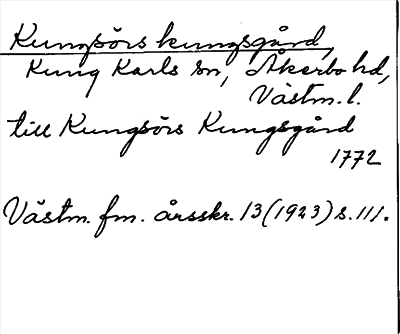 Kungsörs kungsgård,
Kung Karls sn, Åkerbo hd,
Västm. l.
till Kungsörs Kungsgård
1772
Västm. fm. årsskr. 13 (1923) s. 111.